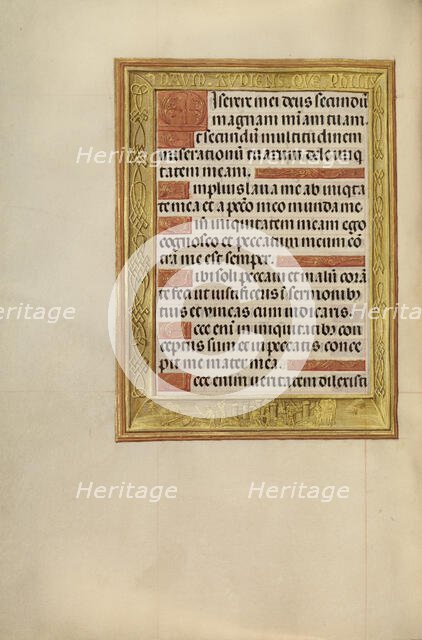 DAVID AUDIENS QVE
Miserere mei deus secundū
magnam miam tuam.
Et secundum multitudinem
miserationū tuarum dele iniqī
tatem meam.
Amplius laua me ab iniqta
te mea et a pctō meo munda me
iniquitatem meam ego
cognosco et peccatum meum cō
tra me est semper.
Tibi soli peccaui et malū corā
te feci ut iustificeris ī sermonibꝰ
tuis et vincas cum iudicaris.
Ecce enī in iniquitatibꝰ con
ceptus sum et in peccatis conce
pit me mater mea.
Ecce enim veritatem dilexisti
Heritage Heritage Heritage
Heritage Heritage Heritage
Heritage Heritage Heritage